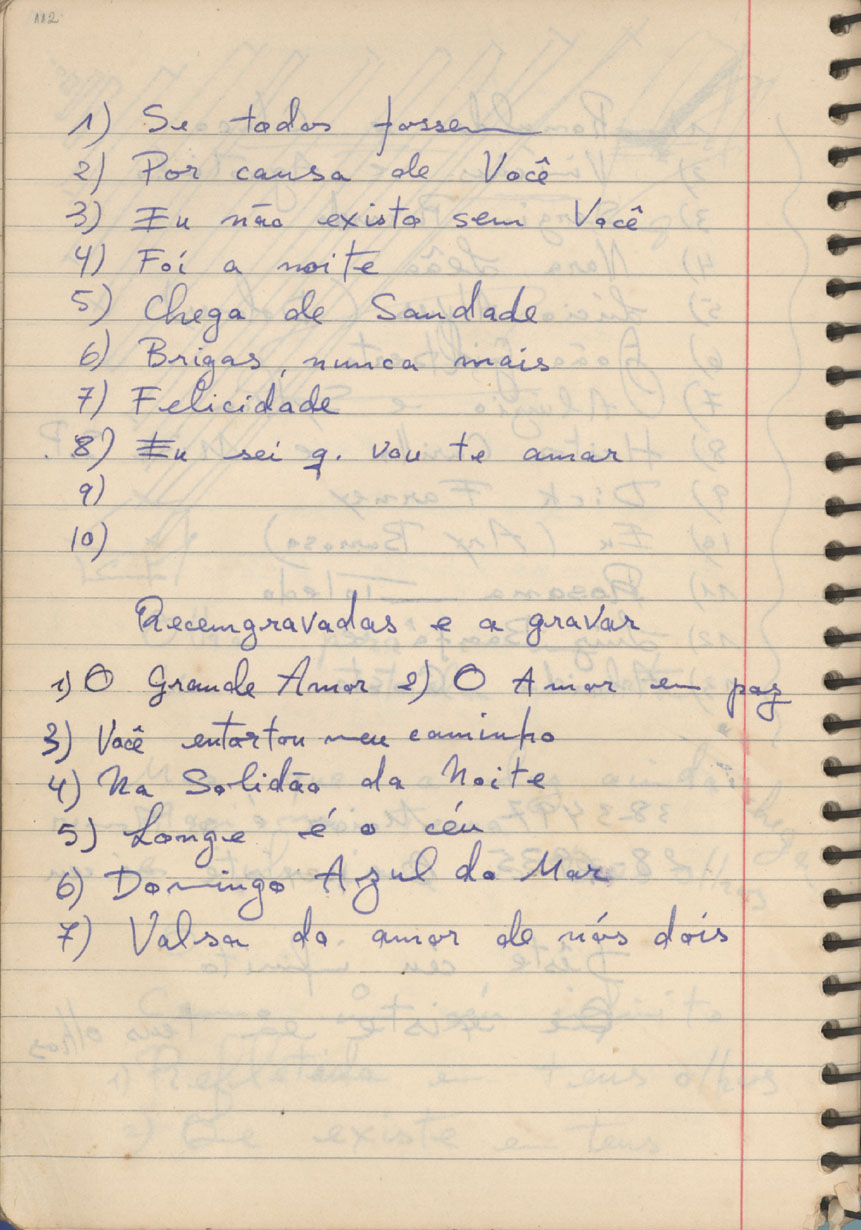 112
1) Se todos fossem
2) Por causa de Você
3) Eu não existo sem Você
4) Foi a noite
5) Chega de Saudade
6) Brigas, nunca mais
7) Felicidade
8) Eu sei q. vou te amar
9)
10)
Recemgravadas e a gravar
1) O Grande Amor 2) O Amor em paz
3) Você entortou meu caminho
4) Na Solidão da Noite
5) Longe é o céu
6) Domingo Azul do Mar
7) Valsa do amor de nós dois